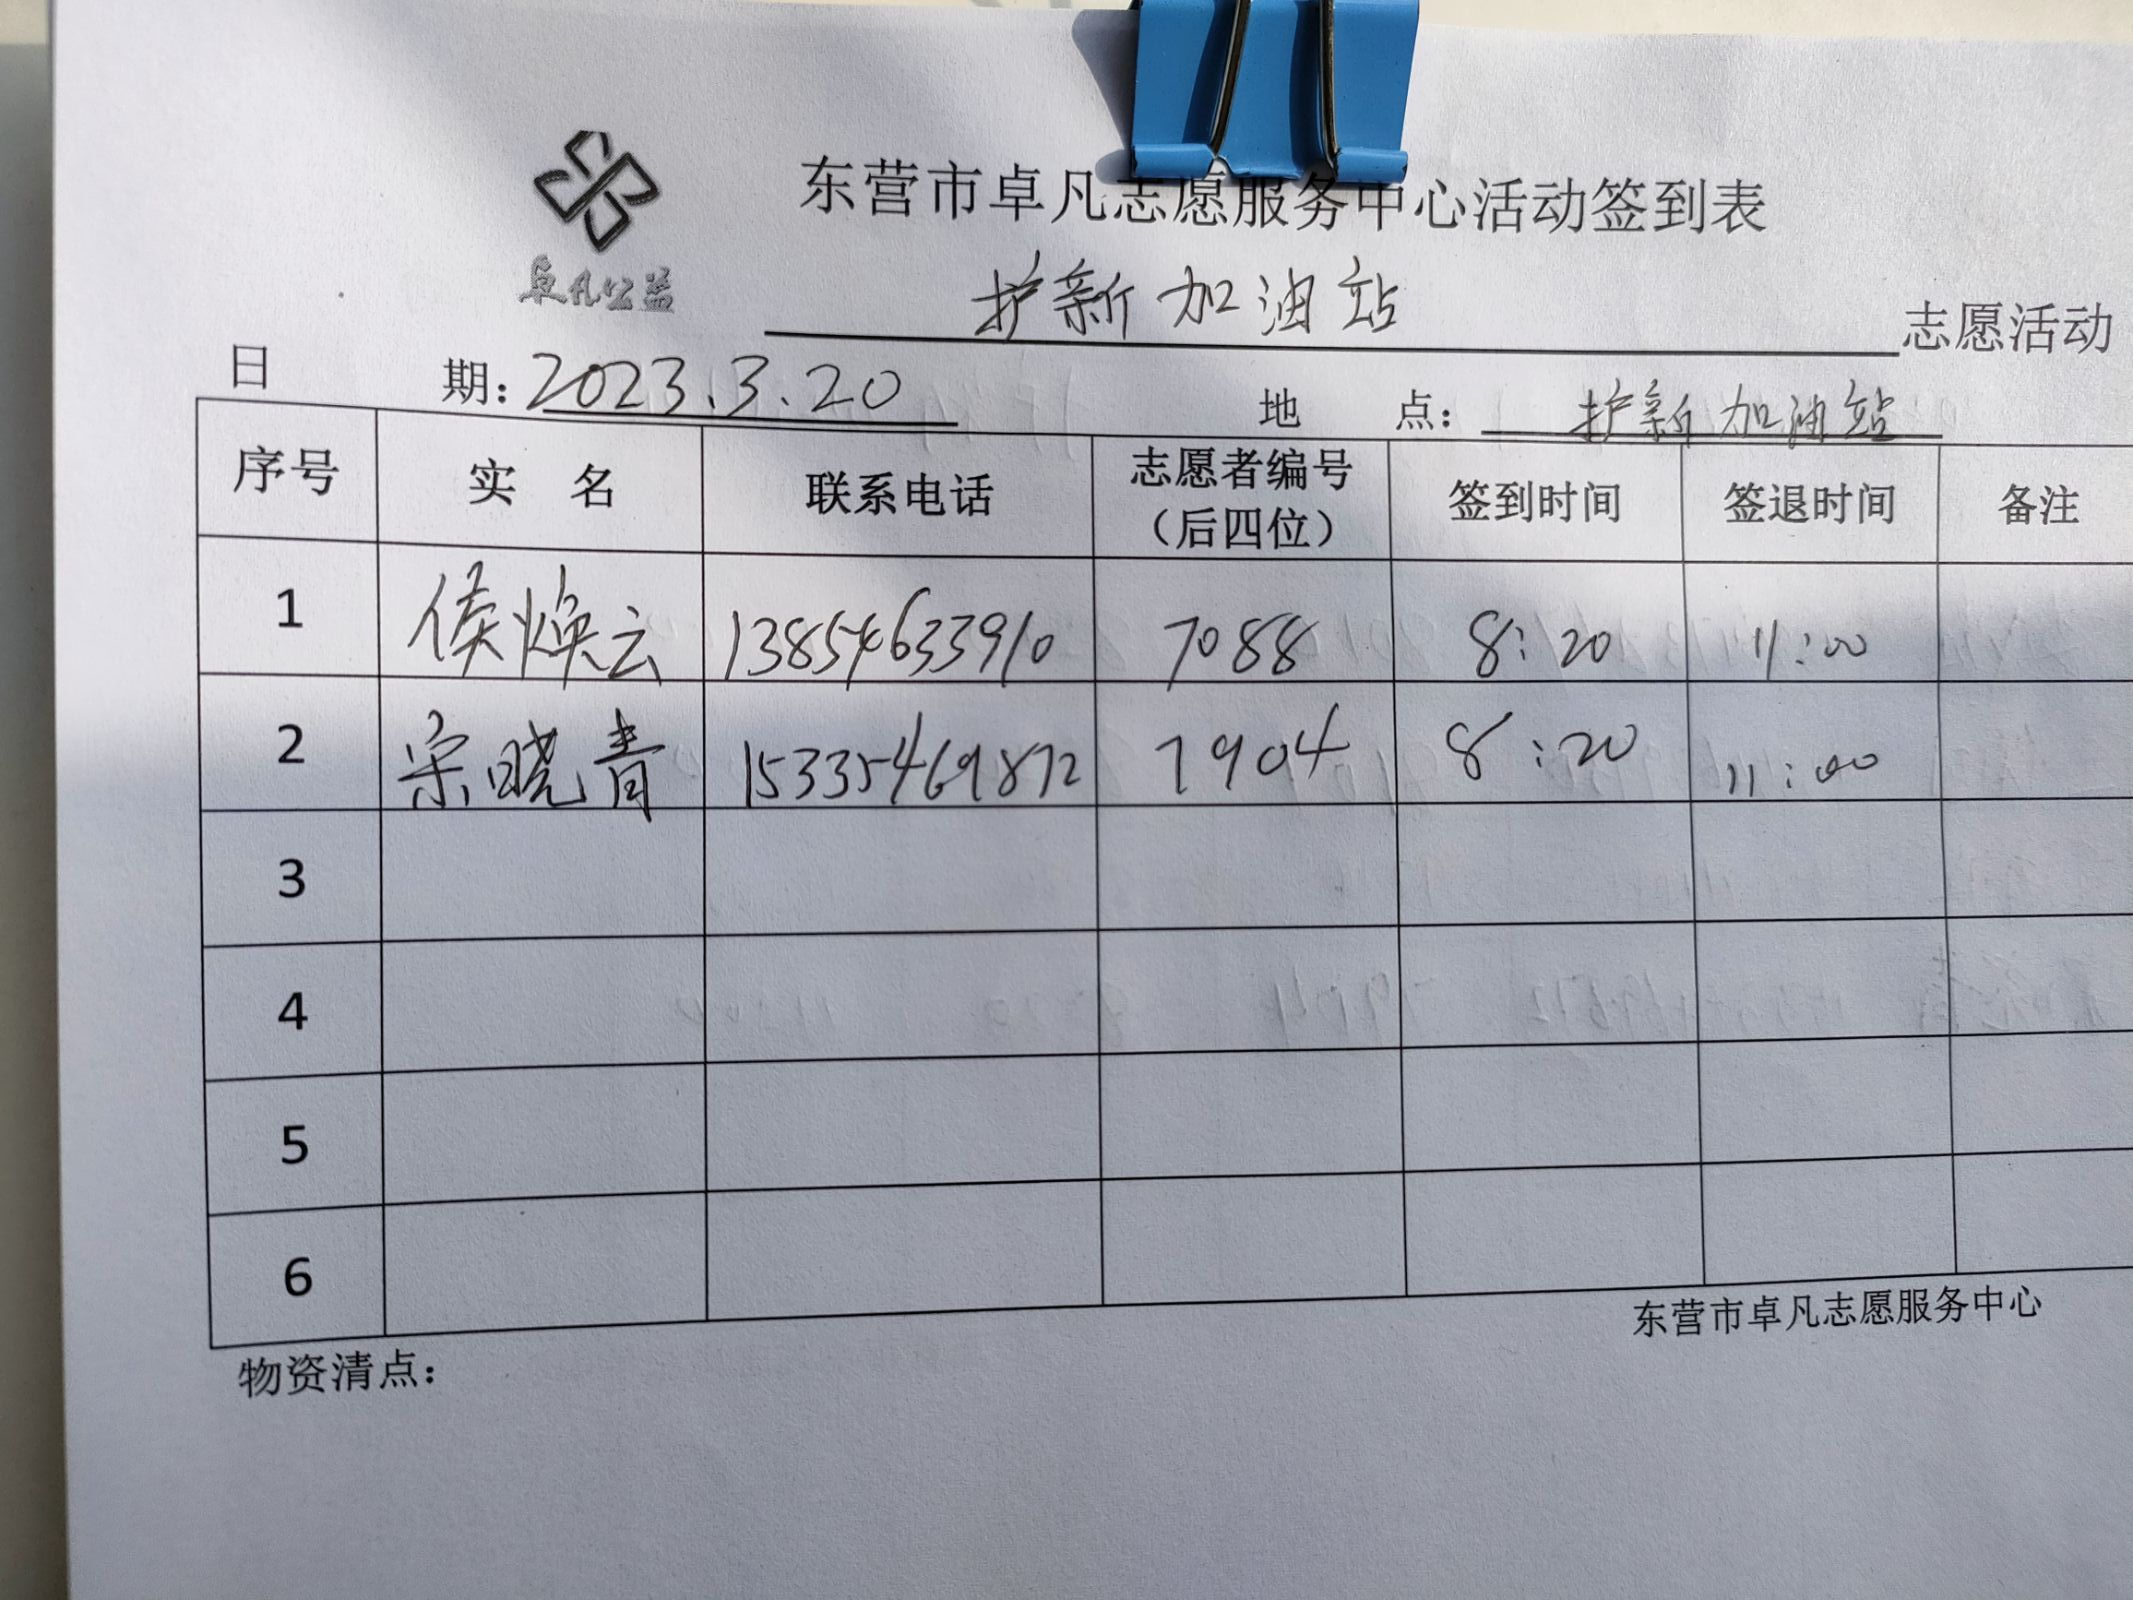 东营市卓凡志愿服务中心活动签到表
卓凡公益
护新加油站 志愿活动
日 期：2023.3.20 地 点：护新加油站
序号 实 名 联系电话 志愿者编号（后四位） 签到时间 签退时间 备注
1 侯焕云 13854633910 7088 8:20 11:00
2 宋晓青 15335469872 7904 8:20 11:00
3
4
5
6
东营市卓凡志愿服务中心
物资清点：